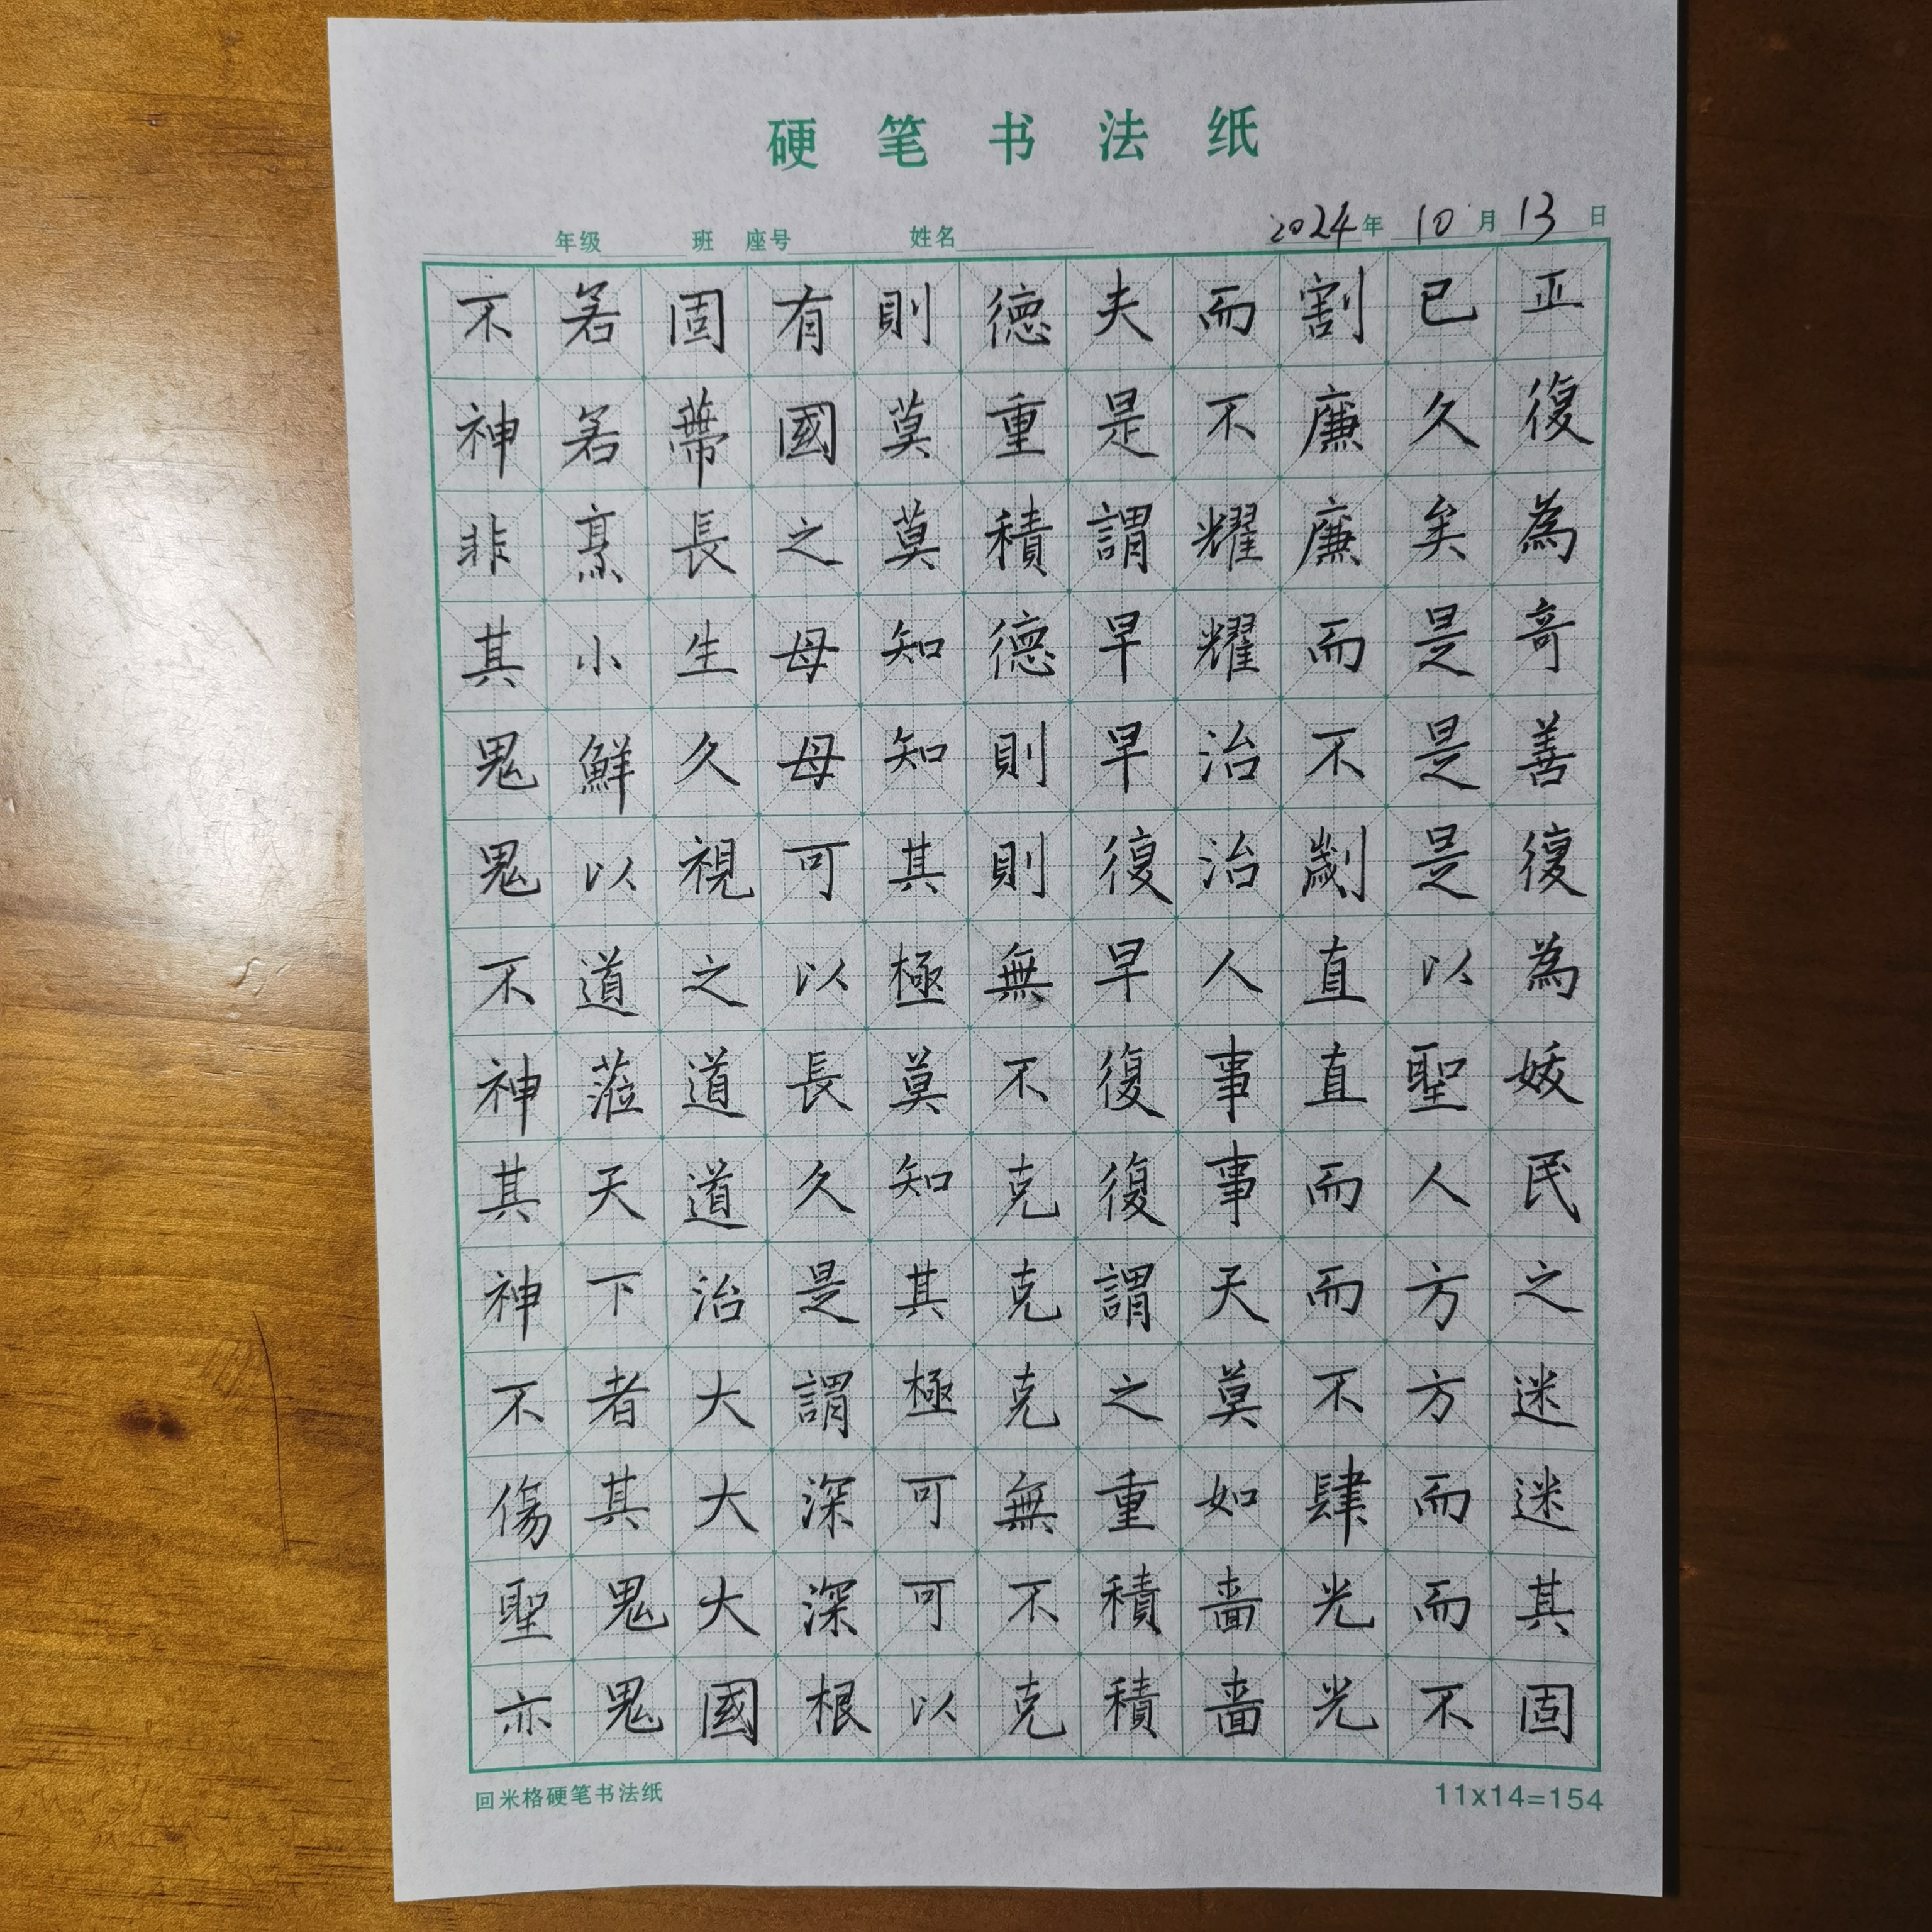 硬笔书法纸
年级 班 座号 姓名 2024年10月13日
正復為奇善復為妖民之迷迷其固
已久矣是是是以聖人方方而而不
割廉廉而不劌直直而而不肆光光
而不耀耀治治人事事天莫如嗇嗇
夫是謂早早復早復復謂之重積積
德重積德則則無不克克克無不克
則莫莫知知其極莫知其極可可以
有國之母母可以長久是謂深深根
固蔕長生久視之道道治大大大國
若若烹小鮮以道蒞天下者其鬼鬼
不神非其鬼鬼不神其神不傷聖亦
回米格硬笔书法纸 11x14=154